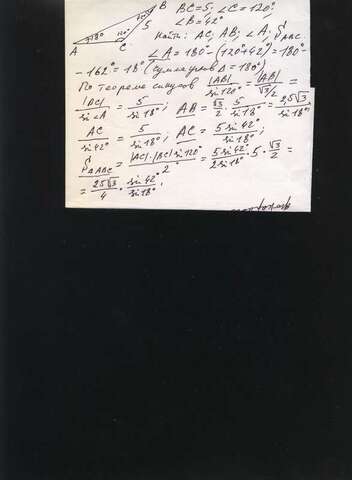 B
42°
BC=5; ∠C=120°;
∠B=42°
5
18°
120°
A
C
Найти: AC; AB; ∠A; S△ABC.
∠A = 180° - (120°+42°) = 180° -
- 162° = 18° (сумма углов △ = 180°)
По теореме синусов |AB|/sin 120° = |AB|/(√3/2) =
|BC|/sin∠A = 5/sin 18°; AB = √3/2 · 5/sin 18° = 2,5√3/sin 18°;
AC/sin 42° = 5/sin 18°; AC = 5 sin 42°/sin 18°;
S△ABC = |AC|·|BC| sin 120°/2 = 5 sin 42°/2 sin 18° · 5 · √3/2 =
= 25√3/4 · sin 42°/sin 18°.